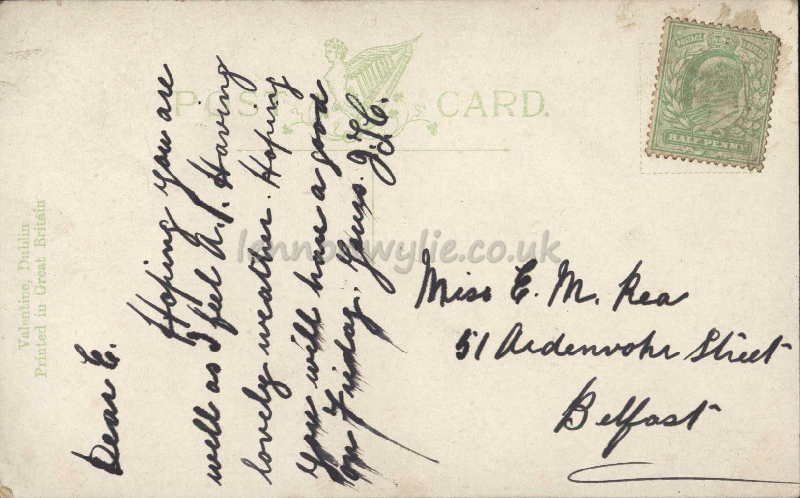 POST CARD.
POSTAGE REVENUE
HALF PENNY
Valentine, Dublin
Printed in Great Britain
Dear E.
Hoping you are
well as I feel A.1. Having
lovely weather. Hoping
you will have a good
on Friday. Yours. J.
Miss E. M. Rea
51 Ardenvohr Street
Belfast
lennonwylie.co.uk